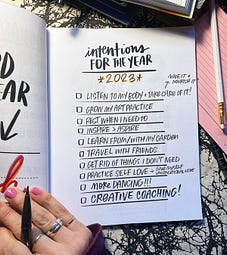 intentions
FOR THE YEAR
*2023*
MOVE IT +
NOURISH IT
LISTEN TO MY BODY + TAKE CARE OF IT!
GROW MY ART PRACTICE
REST WHEN I NEED TO
INSPIRE + ASPIRE
LEARN FROM/WITH MY GARDEN
TRAVEL WITH FRIENDS
GET RID OF THINGS I DON'T NEED
PRACTICE SELF LOVE →
UNCONDITIONAL LOVE
MORE DANCING!!!
CREATIVE COACHING!
EAR